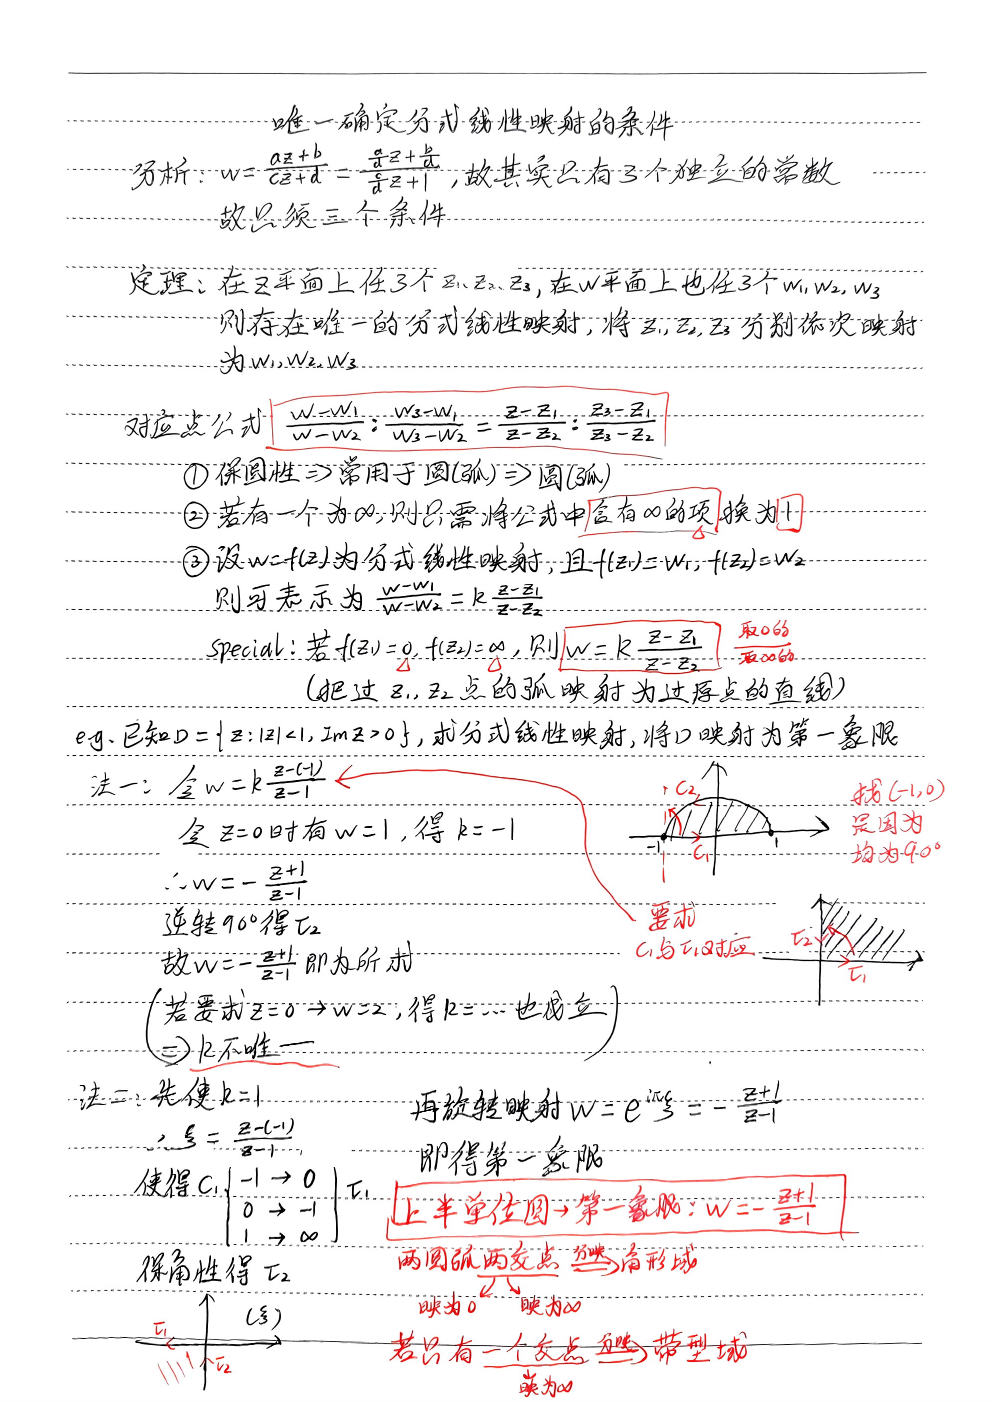 唯一确定分式线性映射的条件
分析: w = \frac{az+b}{cz+d} = \frac{\frac{a}{d}z+\frac{b}{d}}{\frac{c}{d}z+1}, 故其实只有3个独立的常数
故只须三个条件
定理: 在z平面上任3个z₁、z₂、z₃, 在w平面上也任3个w₁, w₂, w₃
则存在唯一的分式线性映射, 将z₁, z₂, z₃分别依次映射
为w₁, w₂, w₃
对应点公式 \frac{w-w₁}{w-w₂} : \frac{w₃-w₁}{w₃-w₂} = \frac{z-z₁}{z-z₂} : \frac{z₃-z₁}{z₃-z₂}
① 保圆性 ⇒ 常用于圆(弧) ⇒ 圆(弧)
② 若有一个为∞, 则只需将公式中含有∞的项换为1
③ 设w=f(z)为分式线性映射, 且f(z₁)=w₁, f(z₂)=w₂
则可表示为 \frac{w-w₁}{w-w₂} = k \frac{z-z₁}{z-z₂}
special: 若f(z₁)=0, f(z₂)=∞, 则 w = k \frac{z-z₁}{z-z₂} \frac{取0的}{取∞的}
(把过z₁, z₂点的弧映射为过原点的直线)
e.g. 已知D={z:|z|<1, Im z>0}, 求分式线性映射, 将D映射为第一象限
法一: 令w = k \frac{z-(-1)}{z-1}
令z=0时有w=1, 得k=-1
∴w = -\frac{z+1}{z-1}
逆转90°得τ₂
故w = -\frac{z+1}{z-1} 即为所求
(若要求z=0→w=2, 得k=…也成立
⇒ k不唯一)
C₂
-1 C₁ 1
找(-1,0)
是因为
均为90°
要求
C₁与τ₁对应
τ₂
τ₁
法二: 先使k=1
∴ξ = \frac{z-(-1)}{z-1}
使得C₁ | -1 → 0 | τ₁
0 → -1
1 → ∞
保角性得τ₂
(ξ)
τ₁
τ₂
再旋转映射w = e^{iπ}ξ = -\frac{z+1}{z-1}
即得第一象限
上半单位圆→第一象限: w = -\frac{z+1}{z-1}
两圆弧两交点 ⇒ 角形域
映为0 映为∞
若只有一个交点 ⇒ 带型域
映为∞